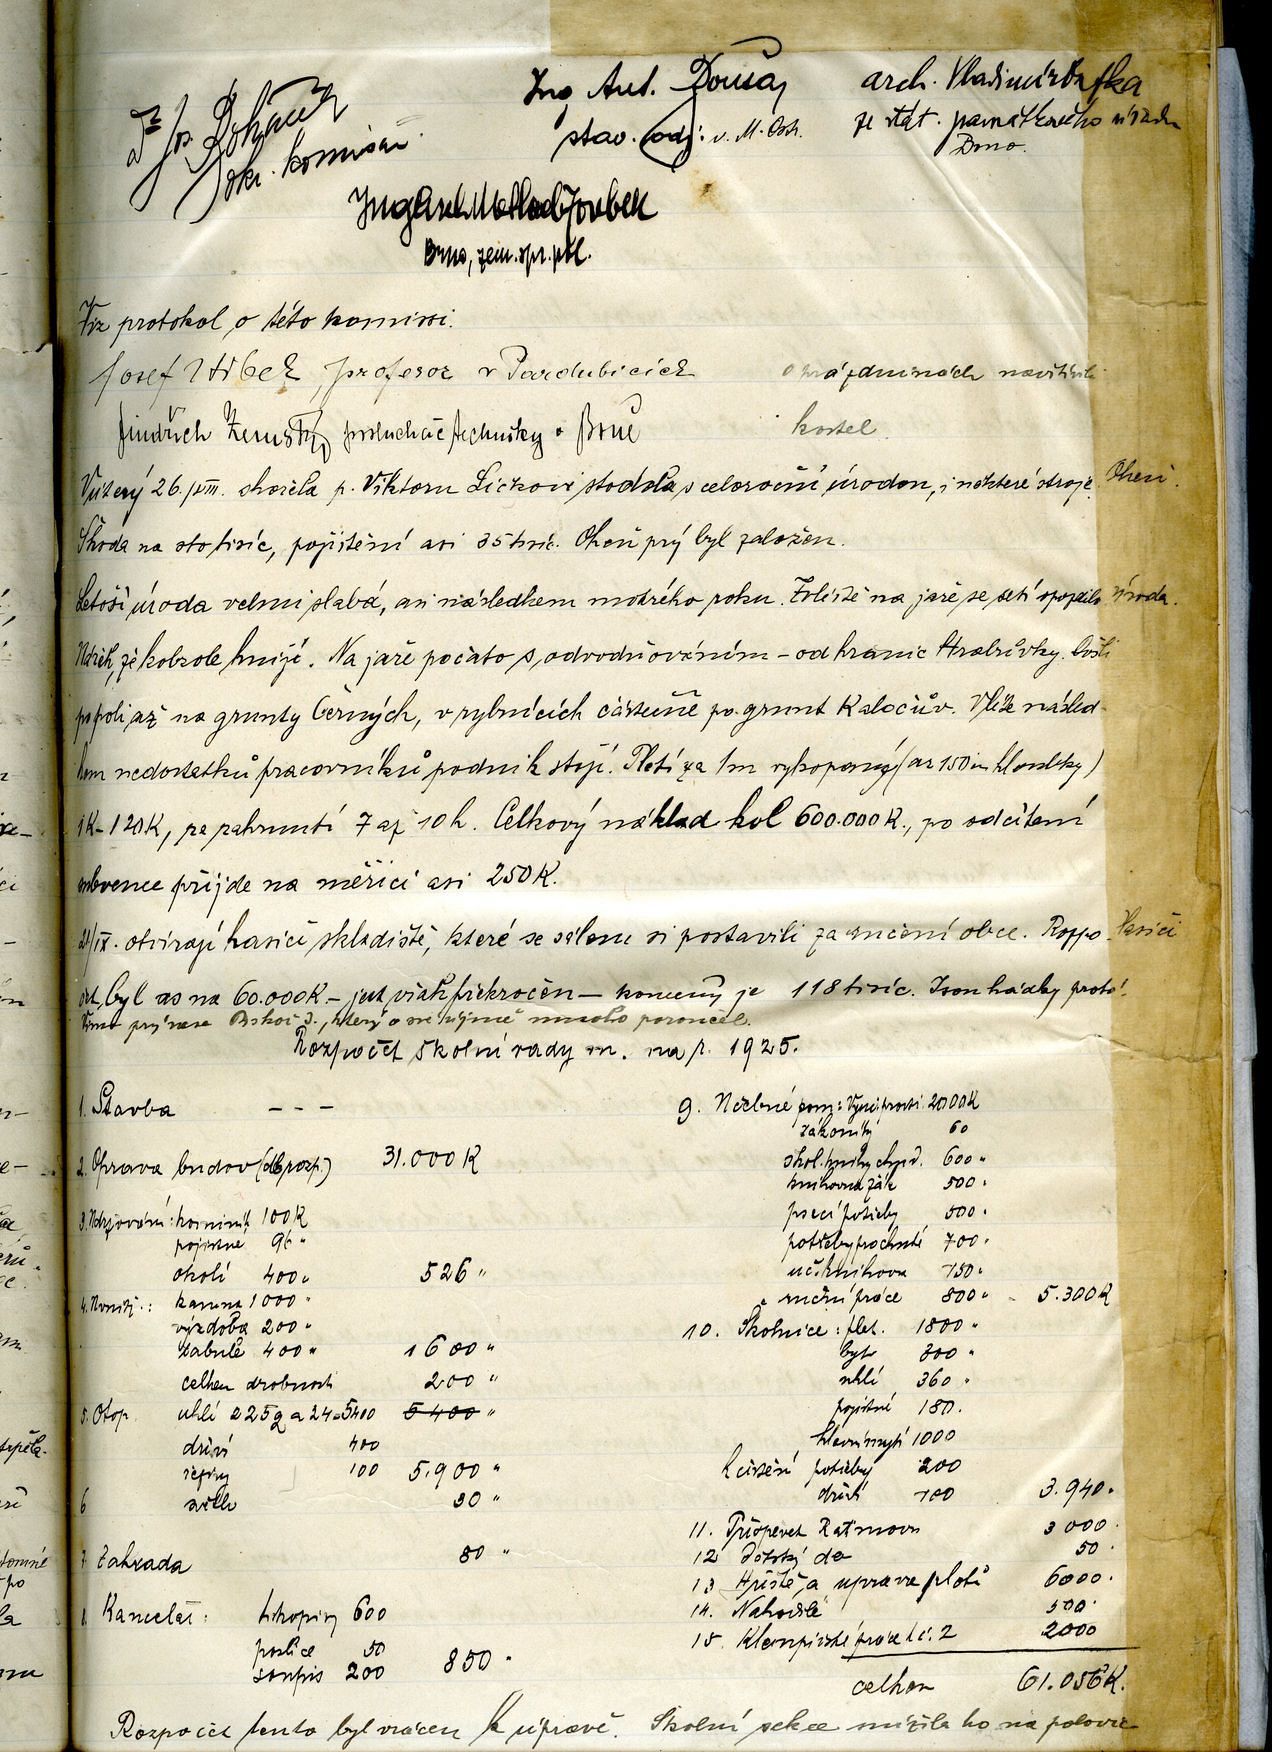 Dr Jos.
okr. komisař
Ing Ant. Douša
stav. odj. v. M. Ostr.
arch. Vladimír
ze stát. památkového úřadu
Brno.
Brno, zem. spr. pol.
Viz protokol o této komissi.
Josef Hřbek, profesor v Pardubicích
o prázdninách navštívili
Jindřich Zemský, posluchač techniky v Brně
kostel.
V úterý 26./VIII. shořela p. Viktoru Lickovi stodola s celoroční úrodou, i některé stroje.
Oheň.
Škoda na sto tisíc, pojištění asi 35 tisíc. Oheň prý byl založen.
Letoší úroda velmi slabá, asi následkem mokrého roku. Zvláště na jaře se setí opozdilo.
Úroda.
Nářek, že kobzole hnijí. Na jaře počato s odvodňováním – od hranic Hrabůvky
po poli až na grunty Černých, v rybnících částečně po grunt Kaločův. V létě násled-
kem nedostatků pracovníků podnik stojí. Platí za 1m vykopaný (as 150 cm hloubky)
1K – 1 20K, za zahrnutí 7 až 10 h. Celkový náklad kol 600.000 K., po odčítení
subvence přijde na měřici asi 250 K.
21/IX. otvírají hasiči skladiště, které se sálem si postavili za ručení obce. Rozpo-
Hasiči
čet byl as na 60.000K – jest však překročen – konečný je 118 tisíc. Jsou hádky proto.
který o své újmě mnoho poručel.
Rozpočet školní rady m. na r. 1925.
1. Stavba – – –
2. Oprava budov 31.000 K
3. Udržování: kominík 100 K
pojistné
okolí 400 „ 526 „
4. Vnitř.: kamna 1000 „
výzdoba 200 „
tabule 400 „ 1600 „
celkem drobnosti 200 „
5. Otop uhlí 225 q a 24 = 5400 5400 „
dříví 400
100 5.900 „
6 světlo 30 „
7 Zahrada 80 „
8. Kancelář: tiskopisy 600
poslice 50
soupis 200 850 „
9. Učebné pom.: Vyuč. prostř. 2000 K
zákoníky 60
škol. knihy chud. 600 „
knihovna žák 500 „
psací potřeby 500 „
potřeby pro chudé 700 „
učit. knihovna 150 „
ruční práce 800 „ 5.300 K
10. Školnice: plat. 1800 „
byt 300 „
uhlí 360 „
pojistné 180.
hlavní mytí 1000
K čištění potřeby 200
dříví 100 3.940.
11. Příspěvek Ratimovu 3000.
12 Dětský den 50.
13 Hřiště a úprava plotů 6000.
14. Nahodilé 500.
15. Klempířské práce č. 2 2000
celkem 61.056 K.
Rozpočet tento byl vrácen k úpravě. Školní sekce snížila ho na polovic